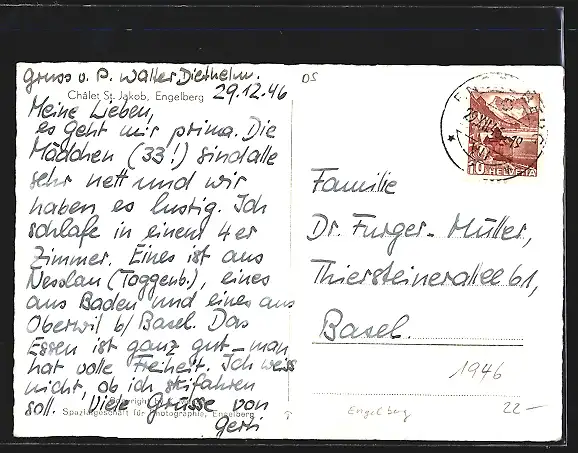 Gruss v. P. Walter Diethelm.
Châlet St. Jakob, Engelberg
29.12.46
Meine Lieben,
es geht mir prima. Die
Mädchen (33!) sind alle
sehr nett und wir
haben es lustig. Ich
schlafe in einem 4er
Zimmer. Eines ist aus
Nesslau (Toggenb.), eines
aus Baden und eines aus
Oberwil b/ Basel. Das
Essen ist ganz gut - man
hat volle Freiheit. Ich weiss
nicht, ob ich skifahren
soll. Viele Grüsse von
Spezialgeschäft für Photographie, Engelberg
Gerti
OS
10 HELVETIA
Familie
Dr. Furger-Müller,
Thiersteinerallee 61,
Basel.
1946
Engelberg
22-